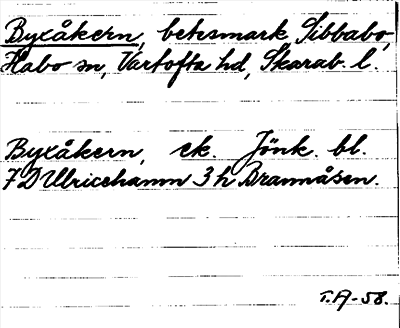 Byxåkern, betesmark, Sibbabo,
Habo sn, Vartofta hd, Skarab. l.
Byxåkern, ek. Jönk. bl.
7 D Ulricehamn 3 h Brannåsen.
T.A-58.